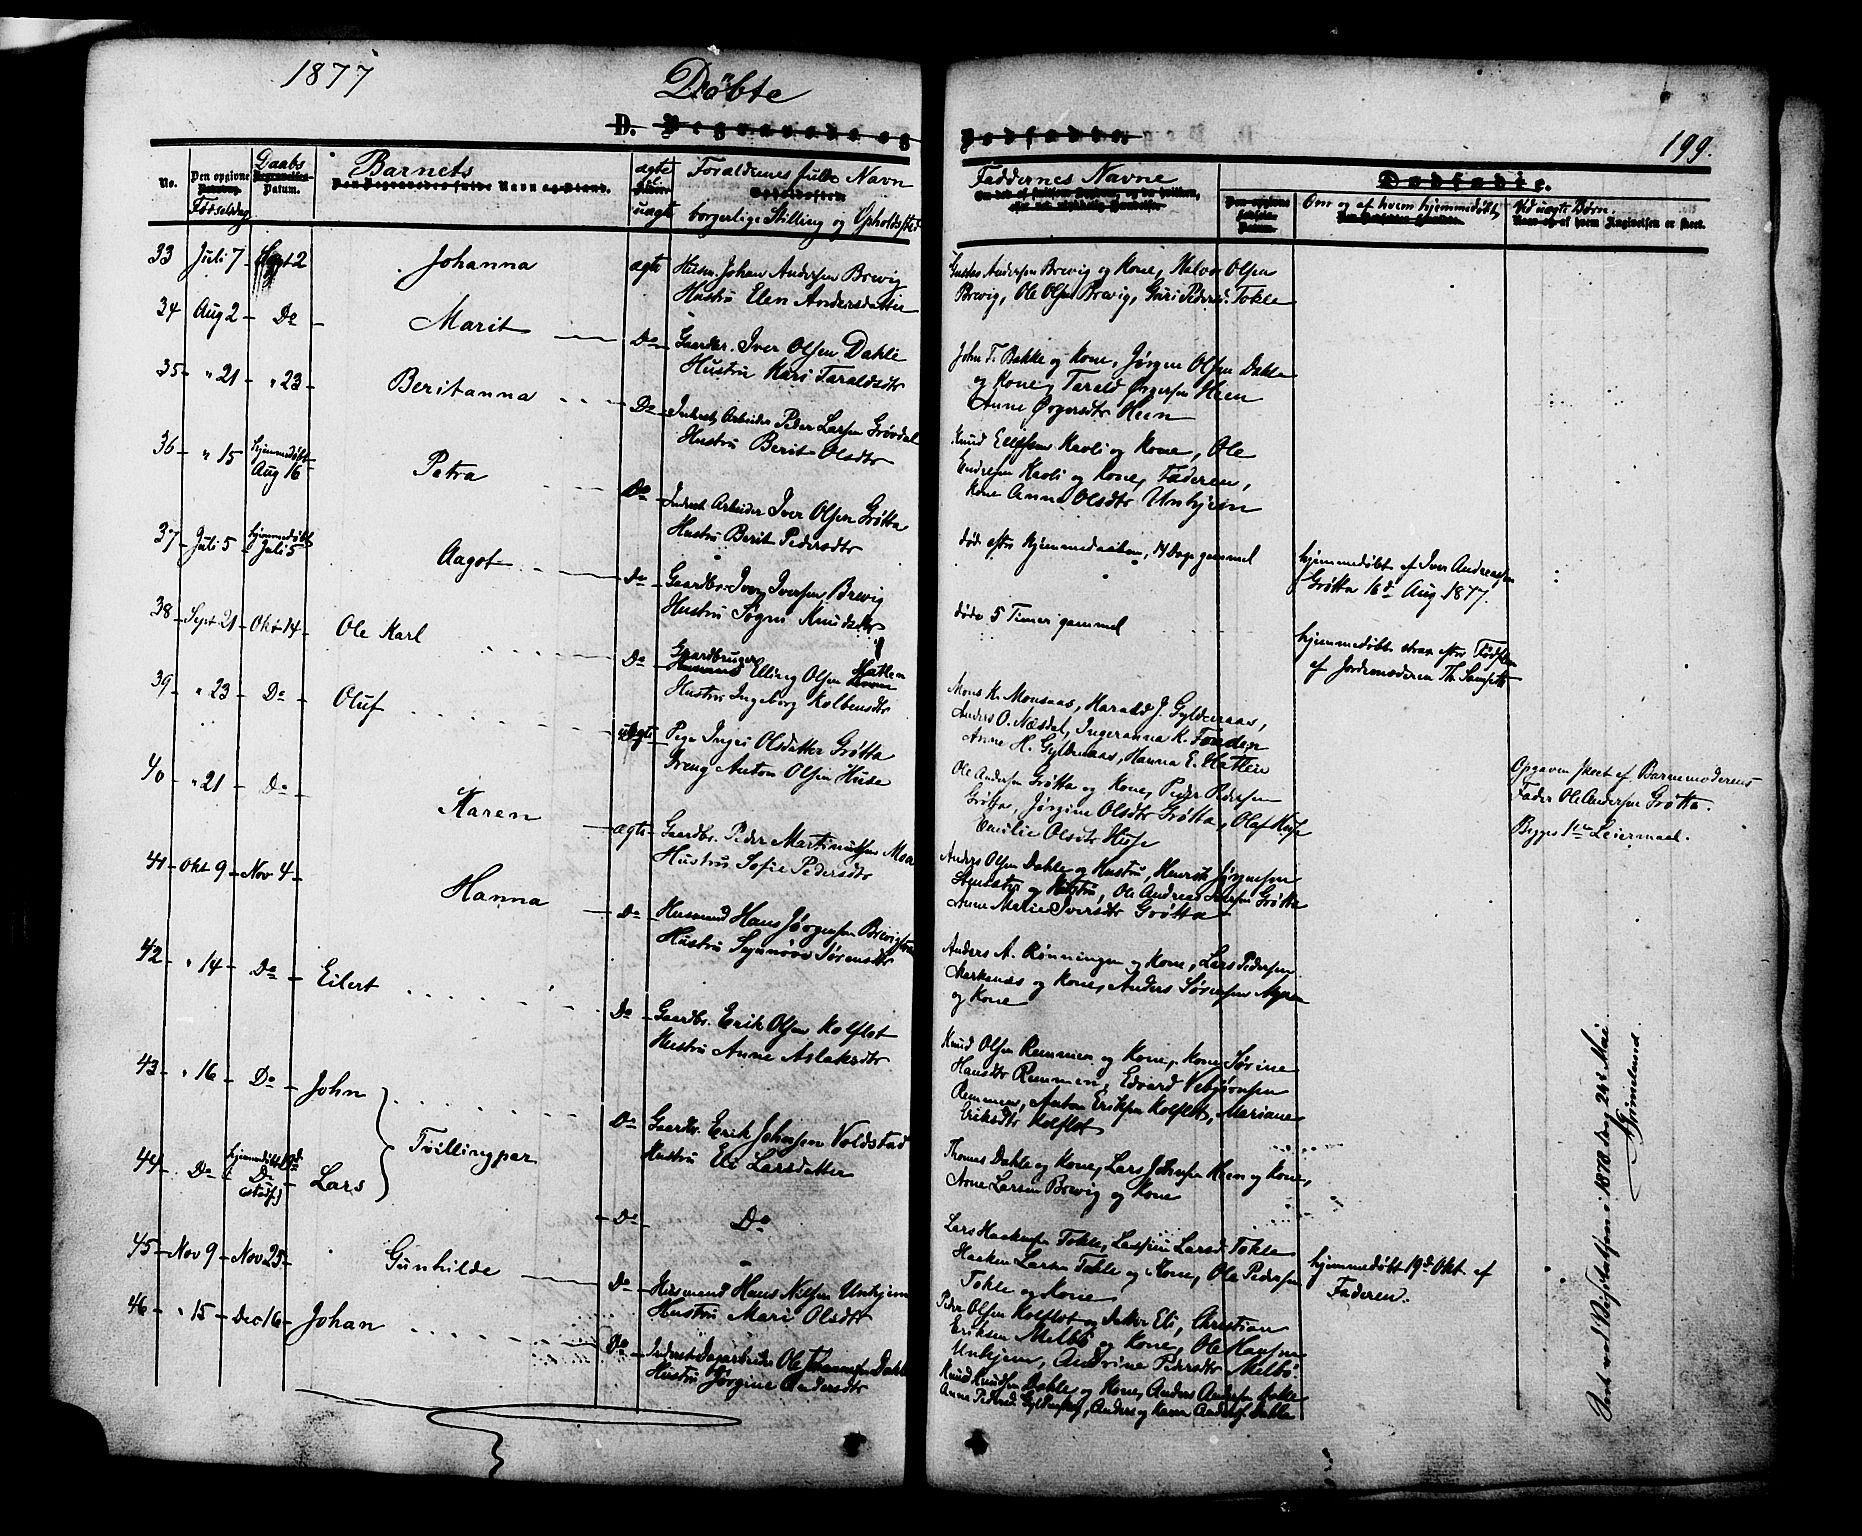 1877
Döbte
D. Begravede og
Dødfødte.
199.
No.
Den opgivne
Fødselsdag
Daabs
Datum.
Barnets
Den Begravedes fulde Navn og Stand.
ægte
uægte
Forældrenes fulde Navn
borgerlige Stilling og Opholdssted
Faddernes Navne
Dødfødte.
Om og af hvem hjemmedøbt
Ved uægte Børn,
33 Juli 7 Sept 2 Johanna ægte Husm. Johan Andersen Brevig
Hustru Elen Andersdatter
Gustav Andersen Brevig og Kone, Halvor Olsen
Brevig, Ole Olsen Brevig, Guri Pedersd. Tokle
34 Aug 2 Do Marit Do Gaardbr. Iver Olsen Dahle
Hustru Kari Taraldsdtr
John T. Bakke og Kone, Jørgen Olsen Dahle
og Kone, Tarald Ørgersen Heen
Anne Ørgersdtr Heen
35 " 21 " 23 Beritanna Do Inderst, Arbeider Peder Larsen Grøvdal
Hustru Berit Olsdtr
Knud Ellefsen Kavli og Kone, Ole
Endresen Kavli og Kone, Faderen,
Kone Anne Olsdtr Unhjem
36 " 15 hjemmedøbt
Aug 16 Petra Do Inderst Arbeider Iver Olsen Grøtta
Hustru Berit Pedersdtr
død efter Hjemmedaaben, 14 Dage gammel
hjemmedøbt af Iver Andreassen
Grøtta 16d Aug 1877.
37 Juli 5 hjemmedøbt
Juli 5 Aagot Do Gaardbr. Ivar Iversen Brevig
Hustru Søgni Knudsdtr
døde 5 Timer gammel
hjemmedøbt strax efter Fødselen
af Jordemoderen Th.
38 Sept 21 Okt 14 Ole Karl Do Gaardbruger
Husmand Elling Olsen Hatlen
Hustru Ingeborg Kolbensdtr
Mons K. Monsaas, Harald J. Gyldenaas,
Anders O. Næsdal, Ingeranna K. Fonden
Anne H. Gyldenaas, Hanna E. Hatlen
39 " 23 Do Oluf uægte Pige Inger Olsdatter Grøtta
Dreng Anton Olsen Huse
Ole Andersen Grøtta og Kone, Peder Pedersen
Grøtta, Jørgine Olsdtr Grøtta, Olaf Huse
Emilie Olsdtr Huse
Opgaven skeet af Barnemoderens
Fader Ole Andersen Grøtta.
Begges 1ste Leiermaal.
40 " 21 Do Karen ægte Gaardbr. Peder Martinussen Moa
Hustru Sofie Pedersdtr
Anders Olsen Dahle og Hustru, Henrik Jørgensen
og Hustru, Ole Andreas Grøtta
Anne Marie Iversdtr Grøtta
41 Okt 9 Nov 4 Hanna Do Husmand Hans Jørgensen
Hustru Synnøve Sørensdtr
Anders A. Rønningen og Kone, Lars Pedersen
og Kone, Anders Sørensen
og Kone
42 " 14 Do Eilert Do Gaardbr. Erik Olsen Kolflot
Hustru Anne Aslaksdtr
Knud Olsen Remmen og Kone, Kone Sørine
Hansdtr Remmen, Edvard Vebjørnsen
Remmen, Anton Eriksen Kolflot, Mariane
Eriksdtr Kolflot
43 " 16 Do John
Tvillingpar
Do Gaardbr. Erik Johnsen Voldstad
Hustru Eli Larsdatter
Thomas Dahle og Kone, Lars Johnsen Heen og Kone,
Arne Larsen Brevig og Kone
44 Do hjemmedøbt 19d
Do
(stadf.) Lars Do Do
Lars Haakensen Tokle, Larsd Tokle
Haaken Larsen Tokle og Kone, Ole Pedersen
Tokle og Kone
hjemmedøbt 19d Okt af
Faderen.
45 Nov 9 Nov 25 Gunhilde Do Husmand Hans Nilsen Unhjem
Hustru Mari Olsdtr
Peder Olsen Kolflot og Datter Eli, Christian
Eriksen Melbø og Kone, Ole Hansen
Unhjem, Andrine Pedersdtr Melbø.
46 " 15 Dec 16 Johan Do Inderst Dagarbeider Ole Johannesen Dahle
Hustru Jørgine Andersdtr
Knud Knudsen Dahle og Kone, Anders Andersen Dahle
Anne Pedersd. Gyldenskog, Anders og Karen Dahle
Seet ved Visitatsen i 1878 den 24d Mai